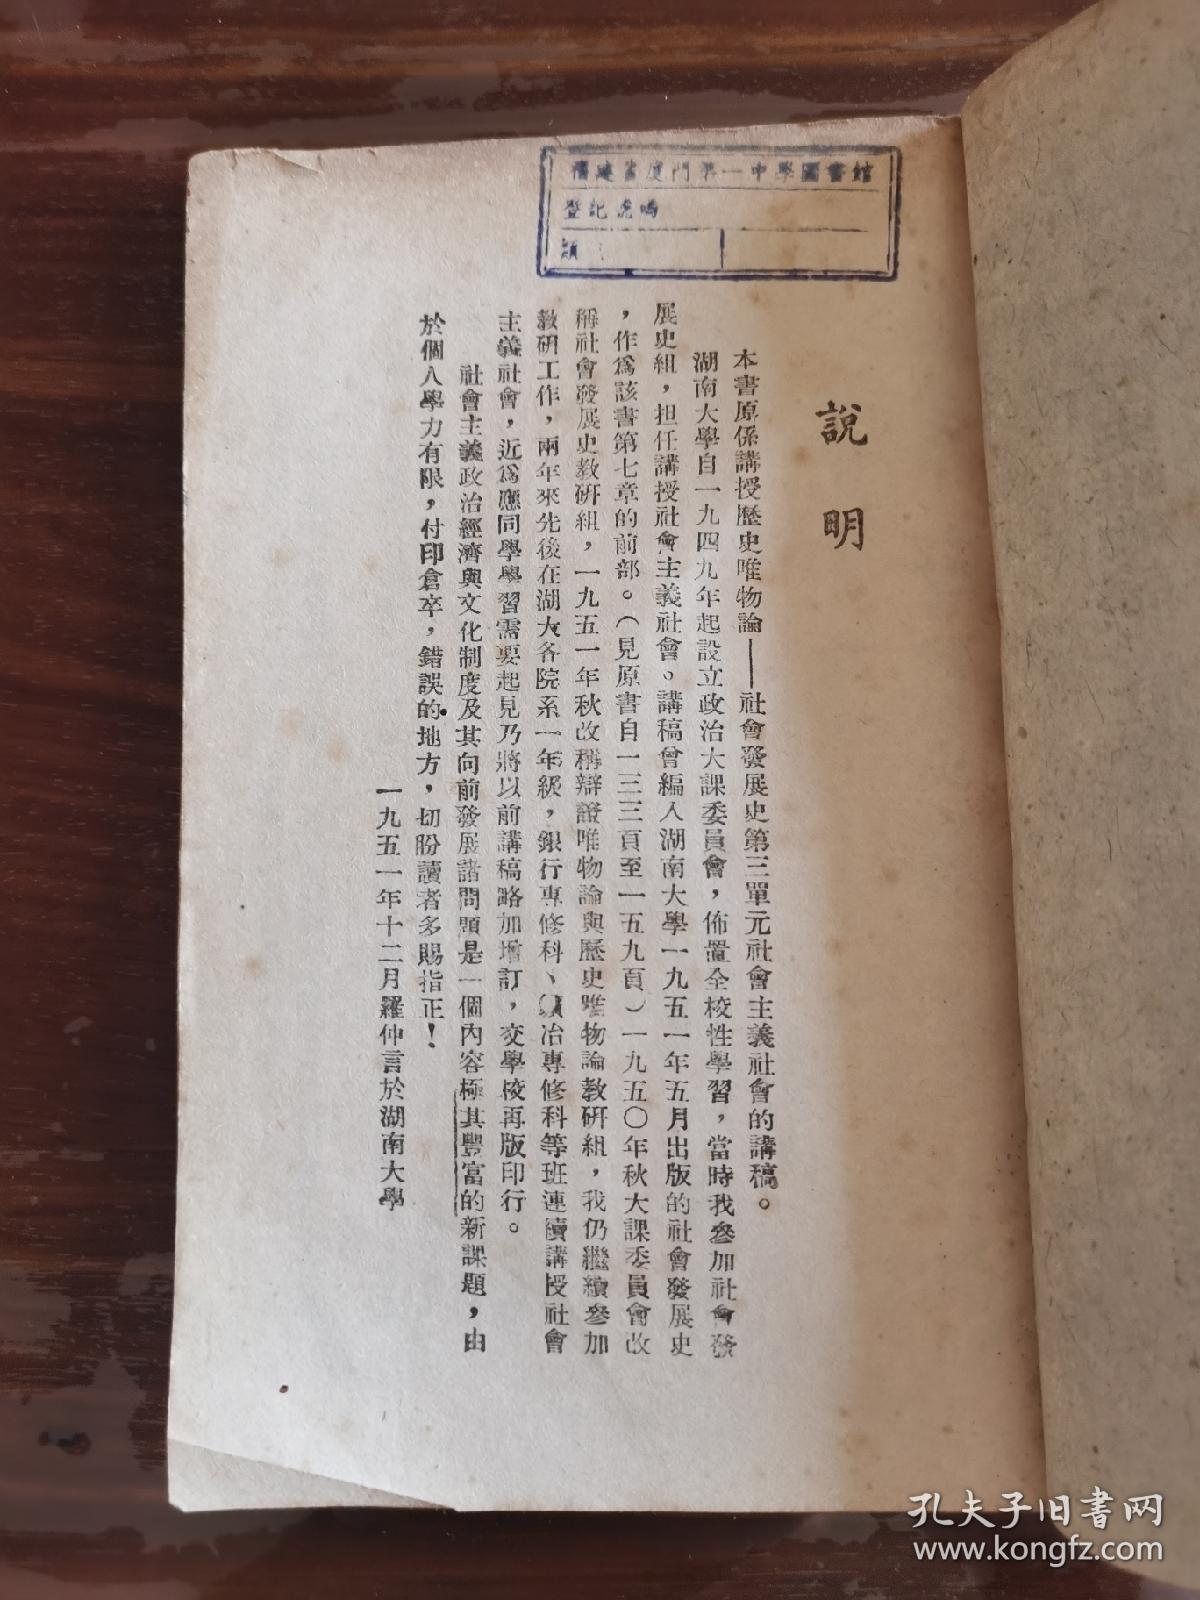 福建省厦門第一中學圖書館
登記號碼
類
說明
本書原係講授歷史唯物論——社會發展史第三單元社會主義社會的講稿。
湖南大學自一九四九年起設立政治大課委員會，佈置全校性學習，當時我參加社會發
展史組，担任講授社會主義社會。講稿曾編入湖南大學一九五一年五月出版的社會發展史
，作爲該書第七章的前部。（見原書自一三三頁至一五九頁）一九五〇年秋大課委員會改
稱社會發展史教研組，一九五一年秋改稱辯證唯物論與歷史唯物論教研組，我仍繼續參加
教研工作，兩年來先後在湖大各院系一年級，銀行專修科、冶專修科等班連續講授社會
主義社會，近爲應同學學習需要起見乃將以前講稿略加增訂，交學校再版印行。
社會主義政治經濟與文化制度及其向前發展諸問題是一個內容極其豐富的新課題，由
於個人學力有限，付印倉卒，錯誤的地方，切盼讀者多賜指正！
一九五一年十二月羅仲言於湖南大學
孔夫子旧书网
www.kongfz.com